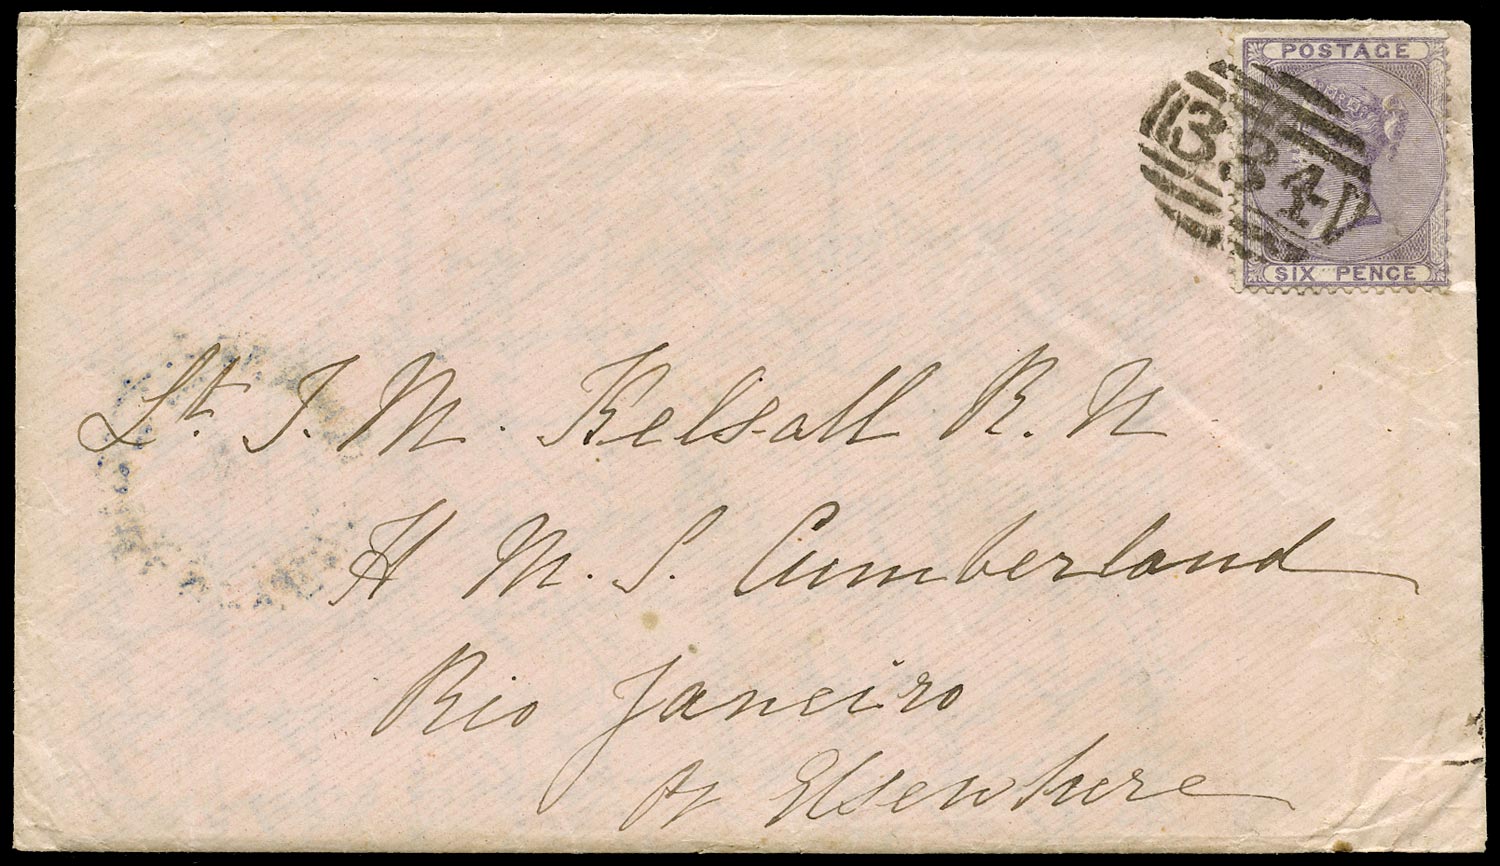 POSTAGE
334
SIX PENCE
Lt. J. M. Kelsall R. N
H M. S. Cumberland
Rio Janeiro
or Elsewhere